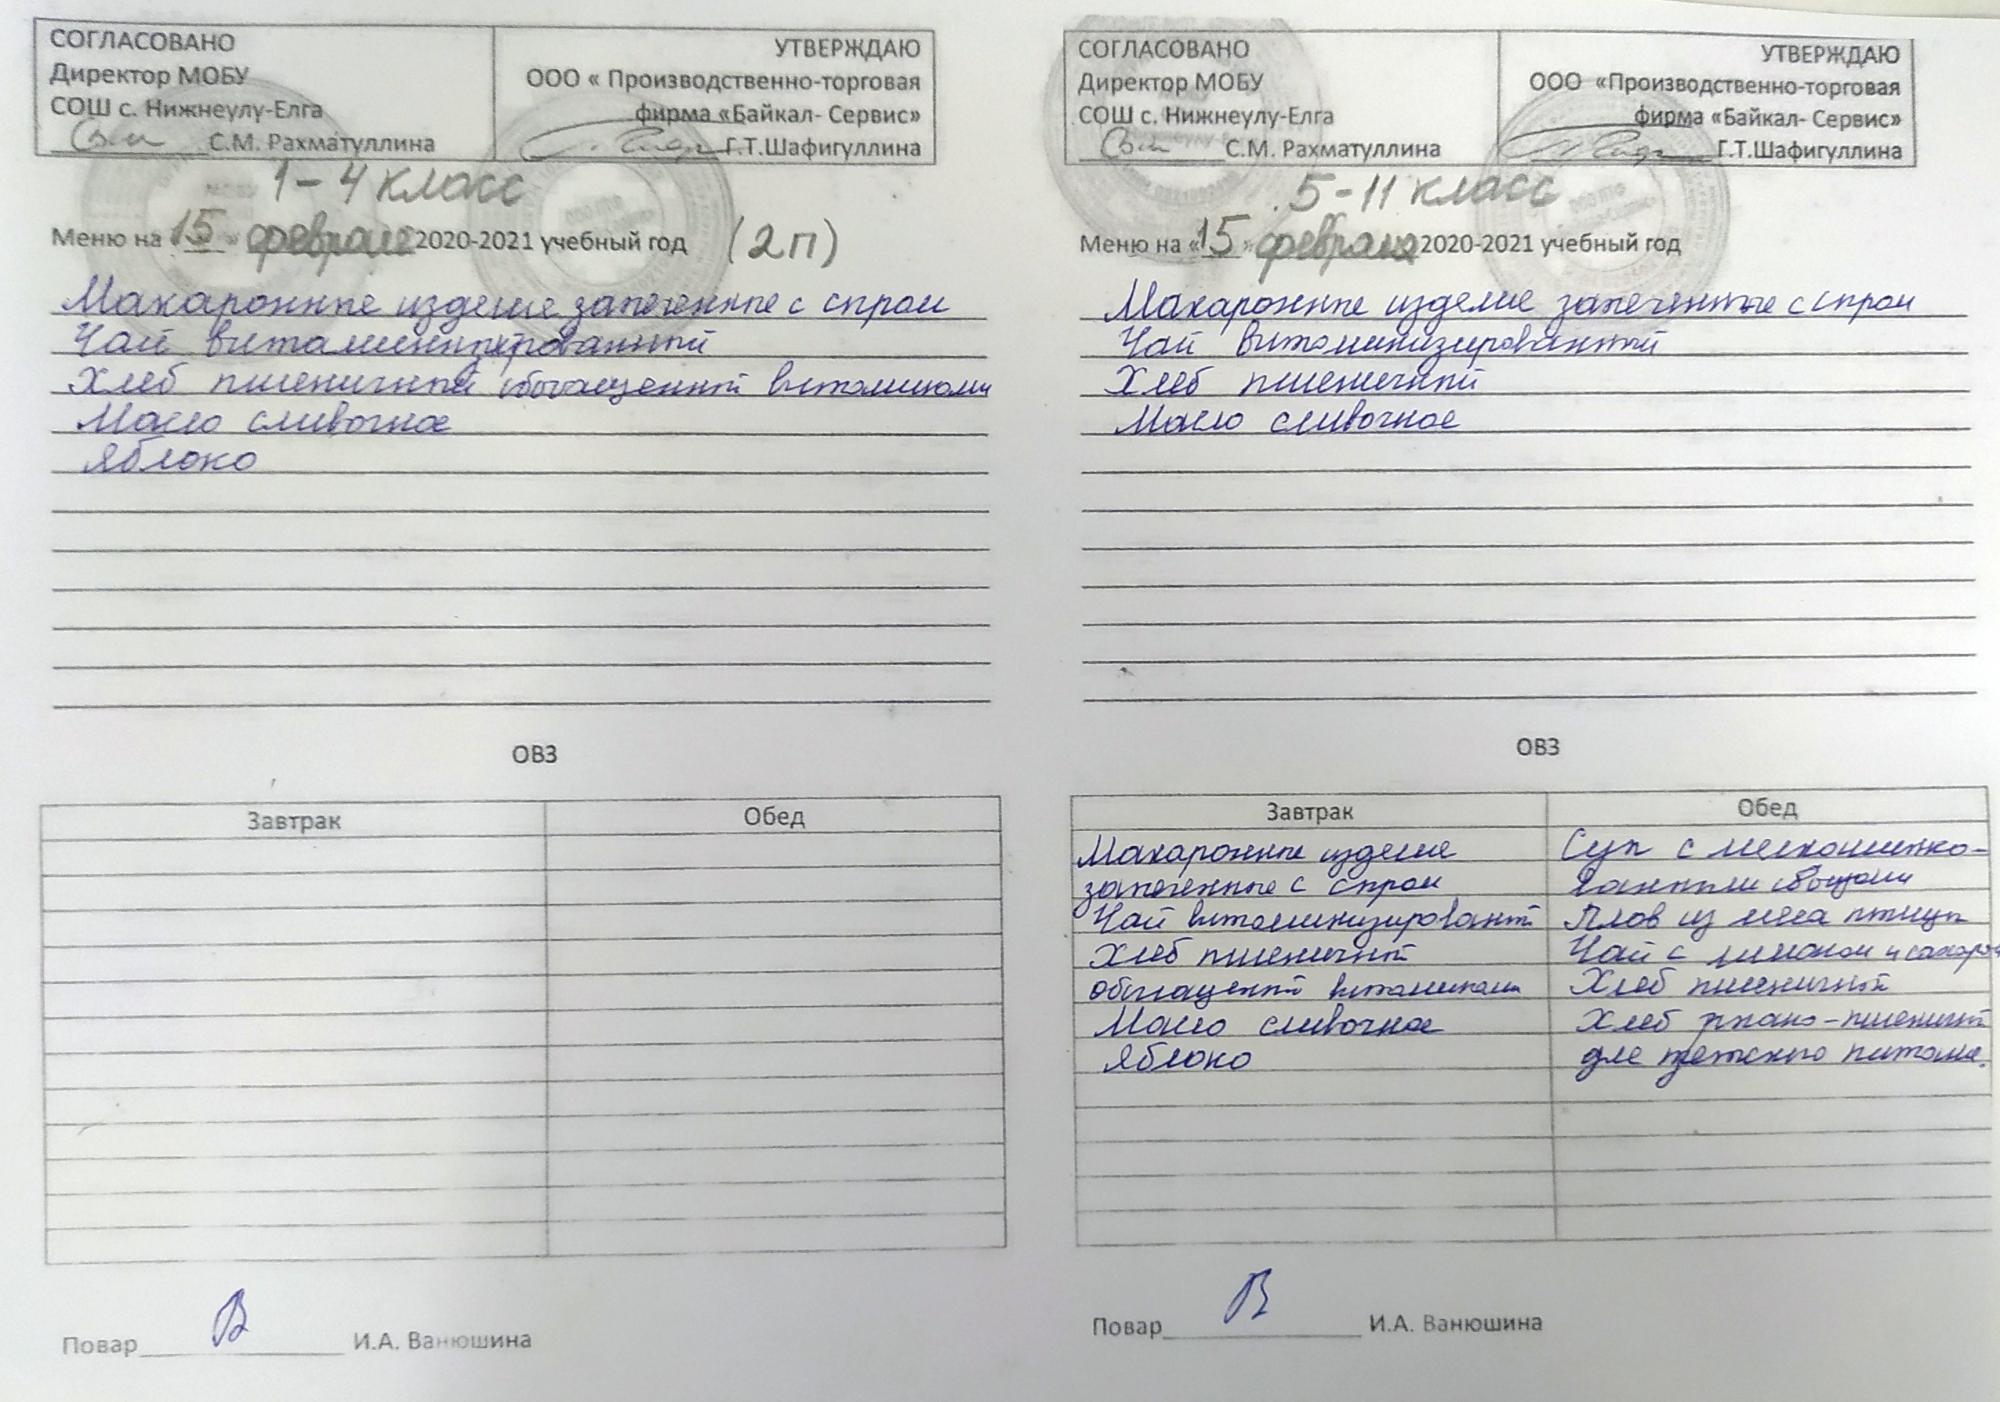 СОГЛАСОВАНО
Директор МОБУ
СОШ с. Нижнеулу-Елга
С.М. Рахматуллина
УТВЕРЖДАЮ
ООО « Производственно-торговая
фирма «Байкал- Сервис»
Г.Т.Шафигуллина
1-4 класс
Меню на 15 » февраля 2020-2021 учебный год (2п)
Макаронные изделие запеченные с сыром
Чай витаминизированный
Хлеб пшеничный обогащенный витаминами
Масло сливочное
Яблоко
ОВЗ
Завтрак Обед
Повар И.А. Ванюшина
СОГЛАСОВАНО
Директор МОБУ
СОШ с. Нижнеулу-Елга
С.М. Рахматуллина
УТВЕРЖДАЮ
ООО «Производственно-торговая
фирма «Байкал- Сервис»
Г.Т.Шафигуллина
5-11 класс
Меню на «15» февраля 2020-2021 учебный год
Макаронные изделие запеченные с сыром
Чай витаминизированный
Хлеб пшеничный
Масло сливочное
ОВЗ
Завтрак
Макаронные изделие
запеченные с сыром
Чай витаминизированный
Хлеб пшеничный
обогащенный витаминами
Масло сливочное
Яблоко
Обед
Суп с мелкошинко-
ванными овощами
Плов из мяса птицы
Чай с лимоном и сахаром
Хлеб пшеничный
Хлеб ржано-пшеничный
для детского питания.
Повар И.А. Ванюшина